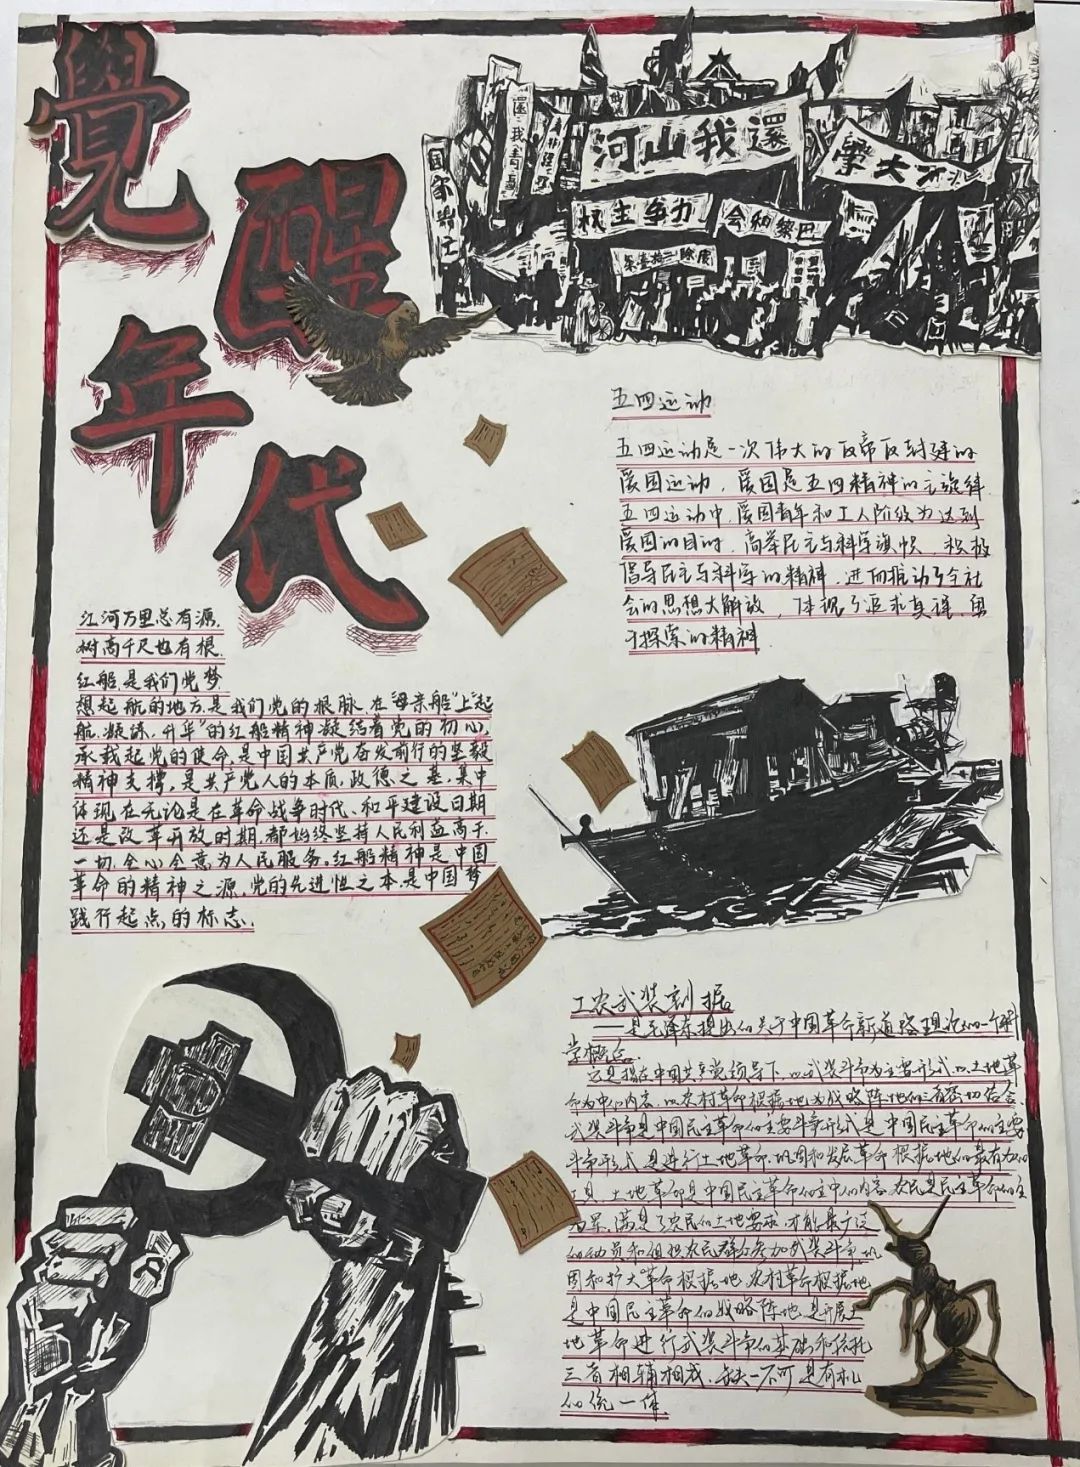 覺
醒
年
代
還我河山
國家興亡
還我青島
力爭主權
巴黎和会
五四运动
五四运动是一次伟大的反帝反封建的
爱国运动，爱国是五四精神的主旋律
五四运动中，爱国青年和工人阶级为达到
爱国的目的，高举民主与科学旗帜，积极
倡导民主与科学的精神，进而推动了全社
会的思想大解放，体现了追求真理，勇
于探索的精神
江河万里总有源，
树高千尺也有根
红船，是我们党梦
想起航的地方，是我们党的根脉，在“母亲船”上“起
航、凝铸、升华”的红船精神凝结着党的初心，
承载起党的使命，是中国共产党奋发前行的坚毅
精神支撑，是共产党人的本质，政德之基，集中
体现在无论是在革命战争时代、和平建设日期
还是改革开放时期，都始终坚持人民利益高于
一切，全心全意为人民服务。红船精神是中国
革命的精神之源，党的先进性之本，是中国梦
践行起点的标志、
工农武装割据
——是毛泽东提出的关于中国革命新道路理论的一个科
学概念.
它是指在中国共产党领导下，以武装斗争为主要形式，以土地革
命为中心内容，以农村革命根据地为战略阵地的三者密切结合
武装斗争是中国民主革命的主要斗争形式是中国民主革命的主要
斗争形式，是进行土地革命，巩固和发展革命根据地的最有力的
工具，土地革命是中国民主革命的中心内容，农民是民主革命的主
力军，满足了农民的土地要求，才能最广泛
的动员和组织农民群众参加武装斗争，巩
固和扩大革命根据地，农村革命根据地
是中国民主革命的战略阵地，是开展土
地革命进行武装斗争的基础和依托
三者相辅相成，缺一不可是有机
的统一体